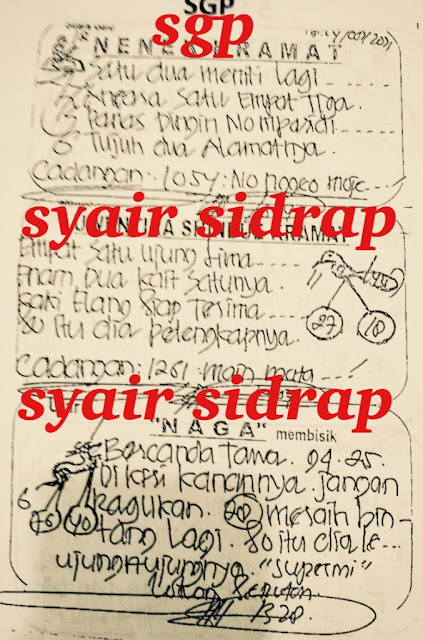 SGP
sgp
NENEK KRAMAT
Satu dua meniti lagi
Angkasa Satu Empat Tiga.
Panas Dingin
Tujuh dua Alamatnya.
Cadangan: 1054:
syair sidrap
KRAMAT
Empat Satu Ujung Lima
Enam Dua Kait Satunya.
Kaki Elang Siap Terima
80 itu dia pelengkapnya.
27 18
Cadangan: 1261: main mata
syair sidrap
"NAGA" membisik
Bercanda Tawa. 94. 25.
Di kiri kanannya jangan
6
ragukan. 20 masih bin-
76 40
tang lagi. 80 itu dia ke...
ujung-ujungnya. "Supermi"
1328